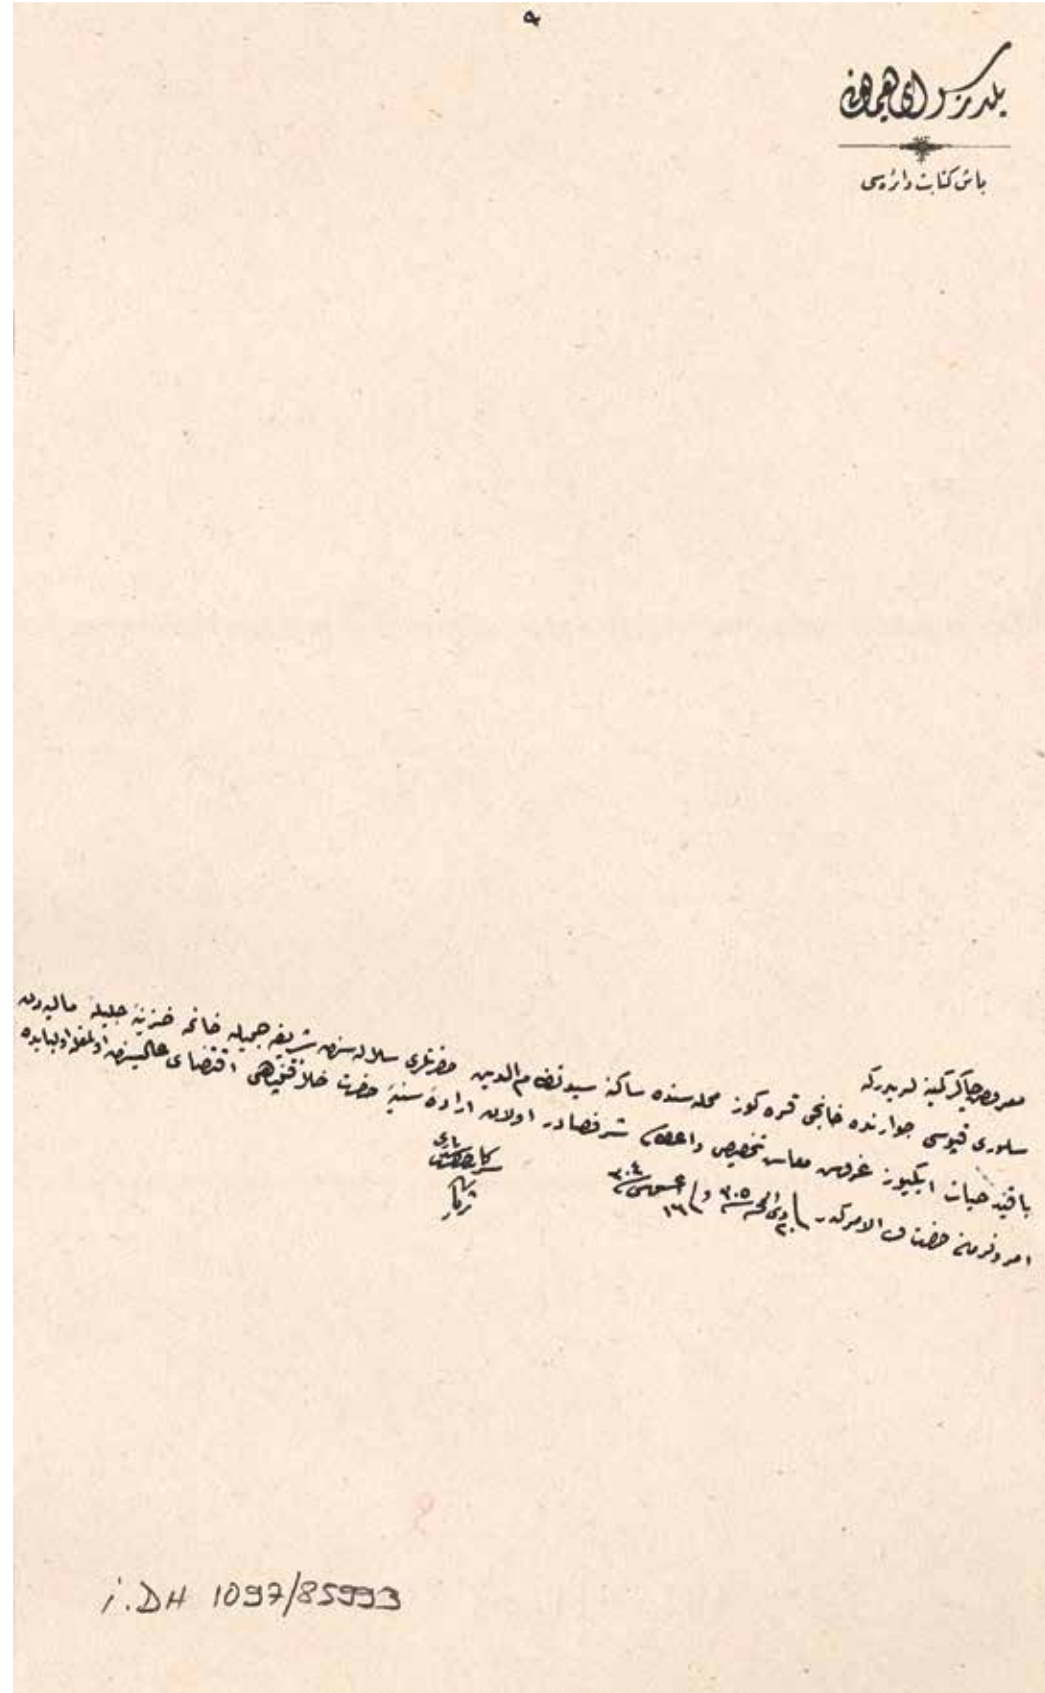 یلدز سرای همایونی
باش کتابت دائره‌سی
معروض چاکر کمینه لریدرکه
سلوری قپوسی جوارنده خانجی قره کوز محله‌سنده ساکنه سید نظام الدین حضرتلری سلاله‌سندن شریفه جمیله خانمه خزینهٔ جلیلهٔ مالیه‌دن
باقید حیات ایکیوز غروش معاش تخصیص و اعطاسی شرفصادر اولان ارادهٔ سنیهٔ حضرت خلافتپناهی اقتضای عالیسندن اولمغله اولبابده
امر و فرمان حضرت ولی الامرکدر فی ٢٠ ذی الحجه سنه ٣٠٥ و فی ١٦ اغستوس سنه ٣٠٤
سر کاتب حضرت شهریاری
ثریا
İ.DH 1097/85993